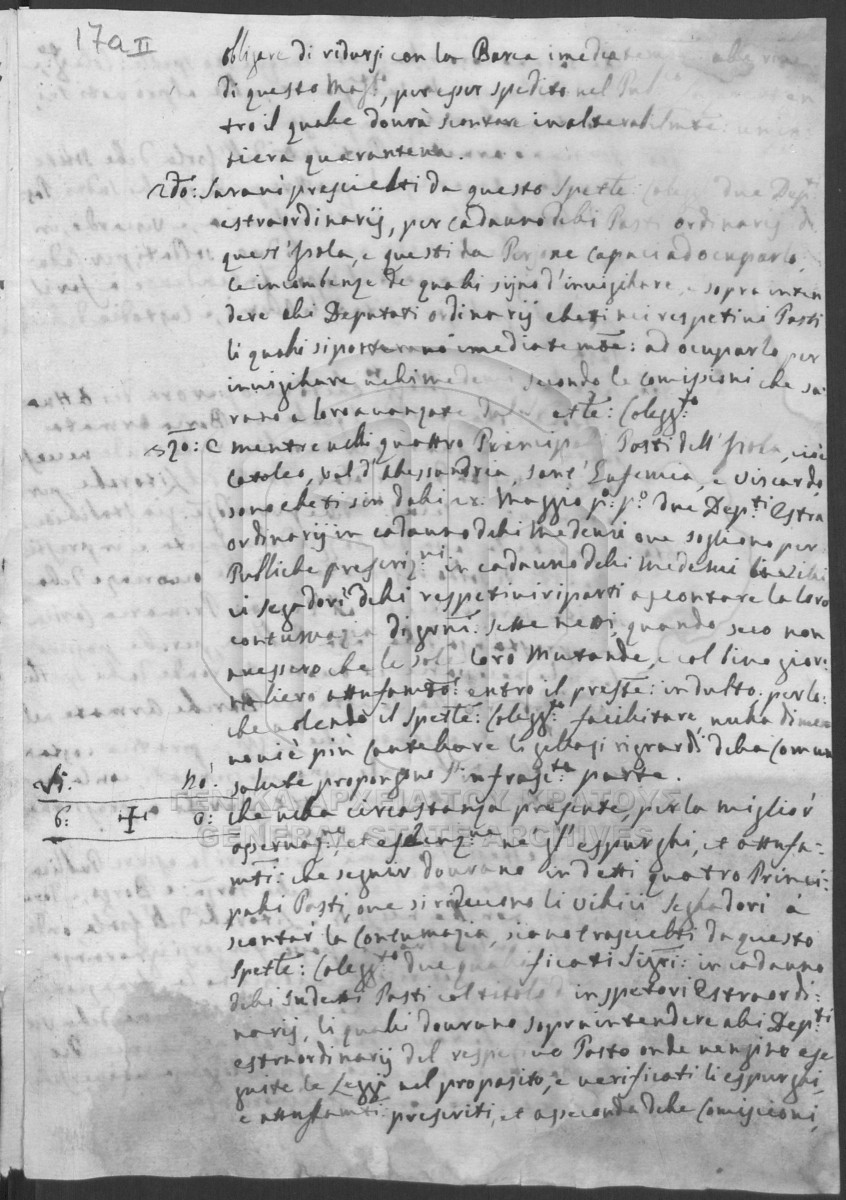 17a II
obligare di ridursi con la Barca imediatem alle
di questo Mag.to, per esser spedito nel Pub
tro il quale dourà scontare inalterabilmte: un in
tiera quarantena.
2do: Sarani prescielti da questo Spettle: Colegg due Dep.ti
estraordinarij, per cadauno deli Posti ordinarij di
quest'Isola, e questi da Persone capaci ad ocuparlo,
le incombenze de quali sijno d'invigilare, e sopra inten
dere ali Deputati ordinarij eletti nei respetivi Posti
li quali si porterano imediatemte: ad ocuparlo per
invigilare nelli medemi secondo le comissioni che sa
rano a loro avanzate dal ettle: Colegg.to
3zo: E mentre nelli quattro Principali Posti dell'Isola, cioè
Catoleo, val d'Alessandria, Sant'Eufemia, e Viscardo,
sono eletti sin dali Maggio p.o p.o due Dep.ti Estra
ordinarij in cadauno deli Medemi oue sogliono per
Publiche prescriz.ni in cadauno deli medemi
i segadori deli respetivi riparti a scontare la loro
contumazia di giorni: sette netti, quando seco non
auessero che le sole loro Mutande, e col lino gior
naliero attufamto: entro il preste: indulto: perlo
che uolendo il Spettle: Colegg.to facilitare, nulla dimen
no cautelare li gelosi riguardi dela Comun
salute propongono l'infrasc.ta parte.
Si. No:
6: 0: Che nella circostanza presente, per la miglior
oseruaz.ne, et negl'espurghi, et attufa-
mti: che seguir dourano in detti quatro Princi-
pali Posti, oue si riducono li Vilici Segadori à
scontar la Contumazia, siano trascielti da questo
Spettle: Colegg.to due qualificati Sigri: in cadauno
deli sudetti Posti col titolo d'inspetori Estraordi-
narij, li quali dourano sopraintendere ali Dep.ti
estraordinarij del respetivo Posto onde uengino ese
guite le Leggi nel proposito, e uerificati li espurghi,
e attufamti: prescriti, et a seconda dele Comissioni,
ΓΕΝΙΚΑ ΑΡΧΕΙΑ ΤΟΥ ΚΡΑΤΟΥΣ
GENERAL STATE ARCHIVES